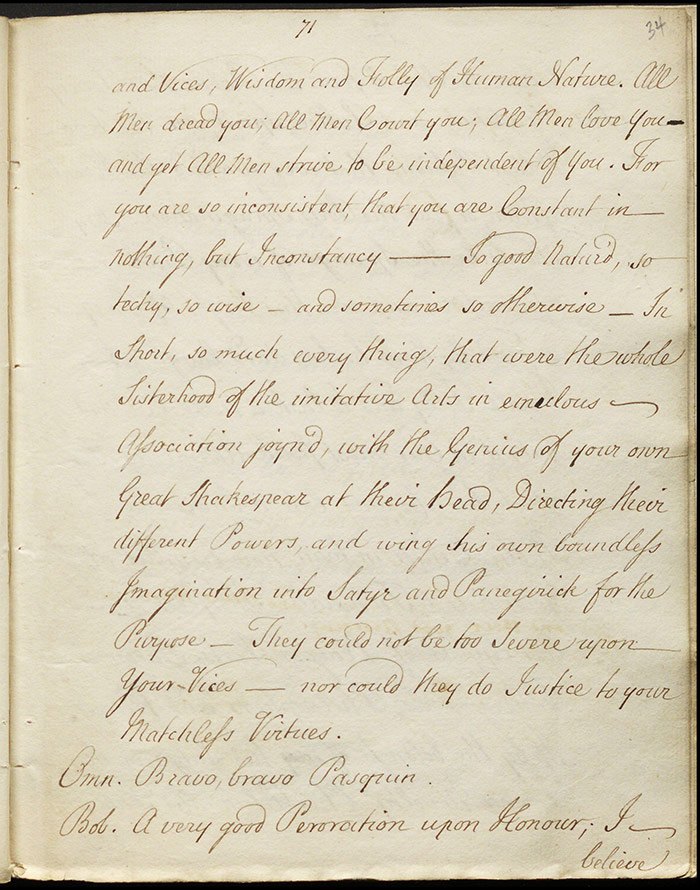 71
34
and Vices, Wisdom and Folly of Human Nature. All
Men dread you; All Men Court you; All Men love you —
and yet All Men strive to be independent of you. For
you are so inconsistent, that you are Constant in —
nothing, but Inconstancy —— So good Natur'd, so
techy, so wise — and sometimes so otherwise — In
Short, so much every thing, that were the whole
Sisterhood of the imitative Arts in emulous —
Association joyn'd, with the Genius of your own
Great Shakespear at their head, Directing their
different Powers, and wing his own boundless
Imagination into Satyr and Panegirick for the
Purpose — They could not be too Severe upon —
Your Vices — nor could they do Justice to your
Matchless Virtues.
Omn. Bravo, bravo Pasquin.
Bob. A very good Peroration upon Honour; I —
believe